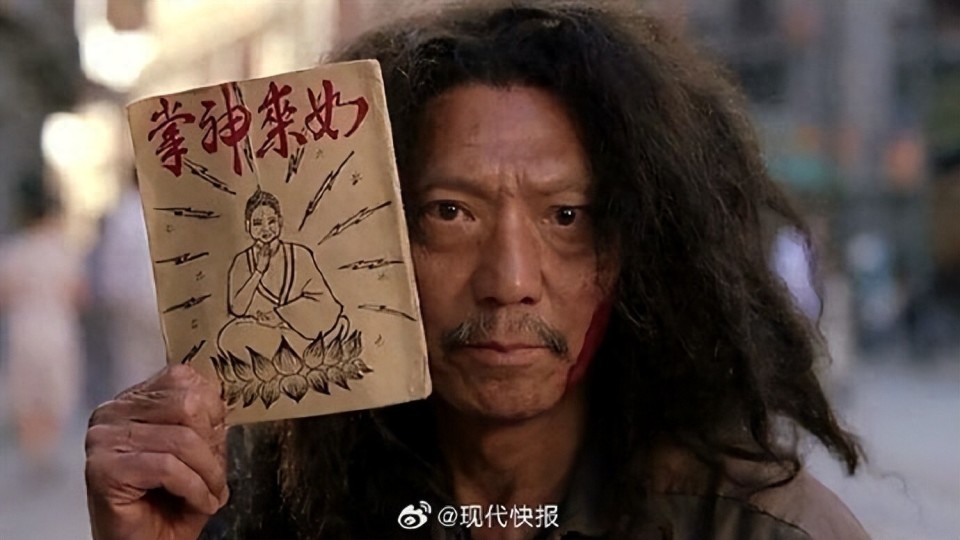 如來神掌
@现代快报